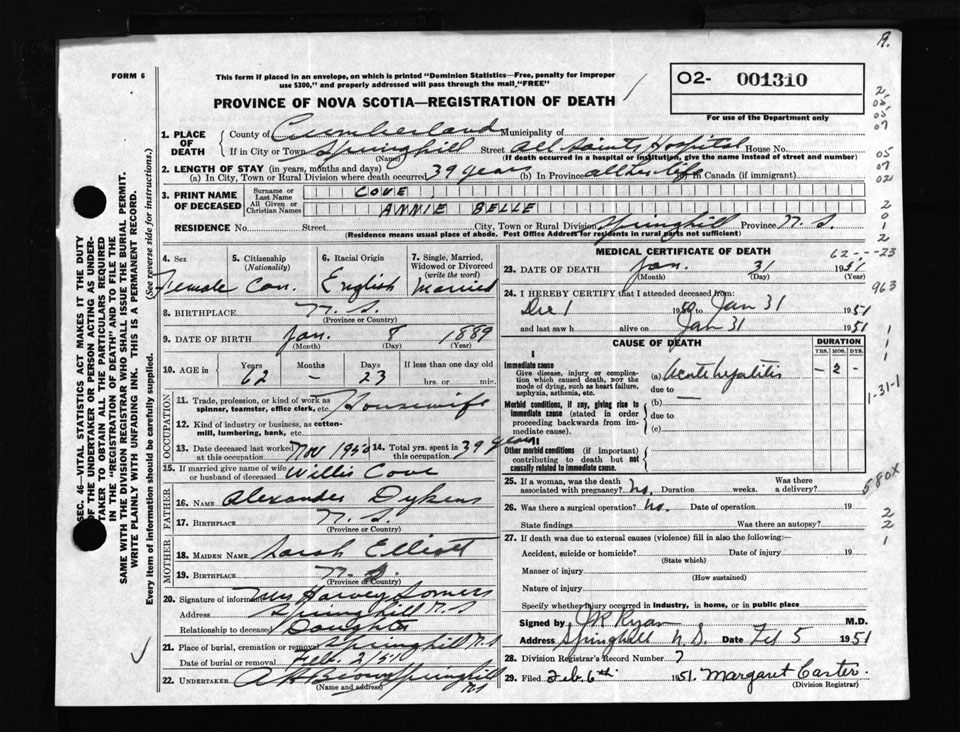 R.
FORM 6
This form if placed in an envelope, on which is printed "Dominion Statistics—Free, penalty for improper
use $300," and properly addressed will pass through the mail "FREE"
O2- 001310
For use of the Department only
PROVINCE OF NOVA SCOTIA—REGISTRATION OF DEATH
1. PLACE OF DEATH
County of Cumberland Municipality of
If in City or Town Springhill Street All Saints Hospital House No.
(Name) (If death occurred in a hospital or institution, give the name instead of street and number)
2. LENGTH OF STAY (in years, months and days)
(a) In City, Town or Rural Division where death occurred 39 years (b) In Province all her life Canada (if immigrant)
3. PRINT NAME OF DECEASED
Surname or Last Name COVE
All Given or Christian Names ANNIE BELLE
RESIDENCE No. Street City, Town or Rural Division Springhill Province N. S.
(Residence means usual place of abode. Post Office Address for residents in rural parts not sufficient)
4. Sex Female
5. Citizenship (Nationality) Can.
6. Racial Origin English
7. Single, Married, Widowed or Divorced (write the word) Married
8. BIRTHPLACE N. S.
(Province or Country)
9. DATE OF BIRTH Jan. 8 1889
(Month) (Day) (Year)
10. AGE in Years 62 Months – Days 23 If less than one day old
hrs. or min.
OCCUPATION
11. Trade, profession, or kind of work as spinner, teamster, office clerk, etc. Housewife
12. Kind of industry or business, as cotton-mill, lumbering, bank, etc.
13. Date deceased last worked at this occupation Nov 1950 14. Total yrs. spent in this occupation 39 years
15. If married give name of wife or husband of deceased Willis Cove
FATHER
16. Name Alexander Dykens
17. Birthplace N. S.
(Province or Country)
MOTHER
18. Maiden Name Sarah Elliott
19. Birthplace N. S.
(Province or Country)
20. Signature of informant Mrs Harvey Somers
Address Springhill N. S
Relationship to deceased Daughter
21. Place of burial, cremation or removal Springhill N. S
Date of burial or removal Feb. 2/51
22. Undertaker A H Brown Springhill NS
(Name and address)
MEDICAL CERTIFICATE OF DEATH 62---23
23. DATE OF DEATH Jan. 31 1951
(Month) (Day)
24. I HEREBY CERTIFY that I attended deceased from:
Dec 1 1950 to Jan 31 1951
and last saw h alive on Jan 31 1951
CAUSE OF DEATH
DURATION
YRS. MOS. DYS.
I
Immediate cause
Give disease, injury or complication which caused death, NOT the mode of dying, such as heart failure, asphyxia, asthenia, etc.
(a) Acute hepatitis – 2 –
due to
Morbid conditions, if any, giving rise to immediate cause (stated in order proceeding backwards from immediate cause).
(b)
due to
(c)
II
Other morbid conditions (if important) contributing to death but not causally related to immediate cause.
25. If a woman, was the death associated with pregnancy? No. Duration weeks. Was there a delivery?
26. Was there a surgical operation? No. Date of operation 19
State findings Was there an autopsy?
27. If death was due to external causes (violence) fill in also the following:—
Accident, suicide or homicide? Date of injury 19
(State which)
Manner of injury
(How sustained)
Nature of injury
Specify whether injury occurred in industry, in home, or in public place
Signed by JR Ryan M.D.
Address Springhill N. S. Date Feb 5 1951
28. Division Registrar's Record Number 7
29. Filed Feb. 6th 1951. Margaret Carter
(Division Registrar)
SEC. 46—VITAL STATISTICS ACT MAKES IT THE DUTY
OF THE UNDERTAKER OR PERSON ACTING AS UNDER-
TAKER TO OBTAIN ALL THE PARTICULARS REQUIRED
IN THE "REGISTRATION OF DEATH" AND TO FILE THE
SAME WITH THE DIVISION REGISTRAR WHO SHALL ISSUE THE BURIAL PERMIT.
WRITE PLAINLY WITH UNFADING INK. THIS IS A PERMANENT RECORD.
Every item of information should be carefully supplied. (See reverse side for instructions.)
2
05
05
07
05
07
02
2
0
1
2
963
1
1
1
1-31-1
580X
2
2
1